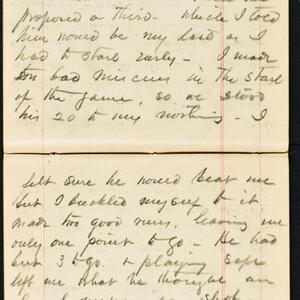 proposed a third - which I told
him would be my last as I
had to start early - I made
bad miscues in the start
of the game, so we stood
his 20 to my nothing - I
felt sure he would beat me
but I buckled myself to it
made two good runs, leaving me
only one point to go - He had
but 3 to go & playing safe
left me what he thought an